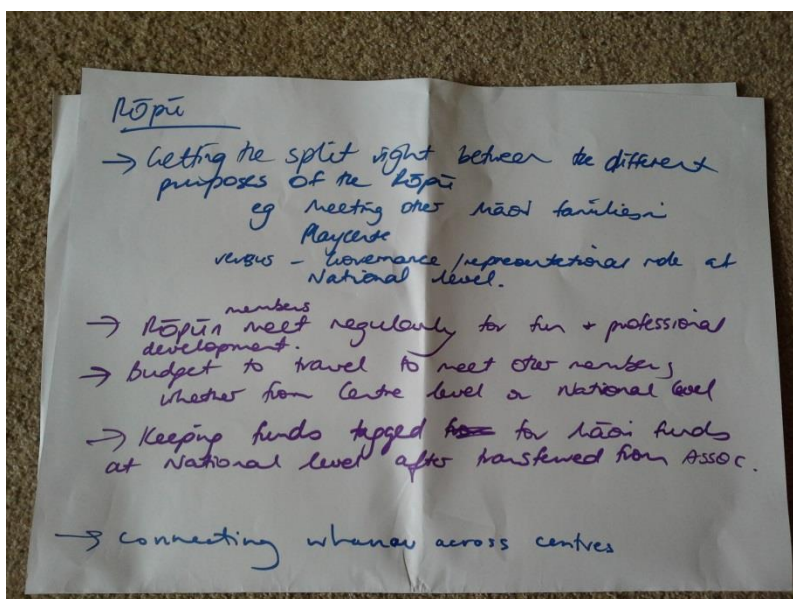 Rōpū
→ Getting the split right between the different
purposes of the Rōpū
eg Meeting other Māori families in
Playcentre
versus - Governance / representational role at
National level.
members
→ Rōpū meet regularly for fun + professional
development.
→ Budget to travel to meet other members
whether from Centre level or National level
→ Keeping funds tagged for Māori funds
at National level after transferred from Assoc.
→ connecting whanau across centres